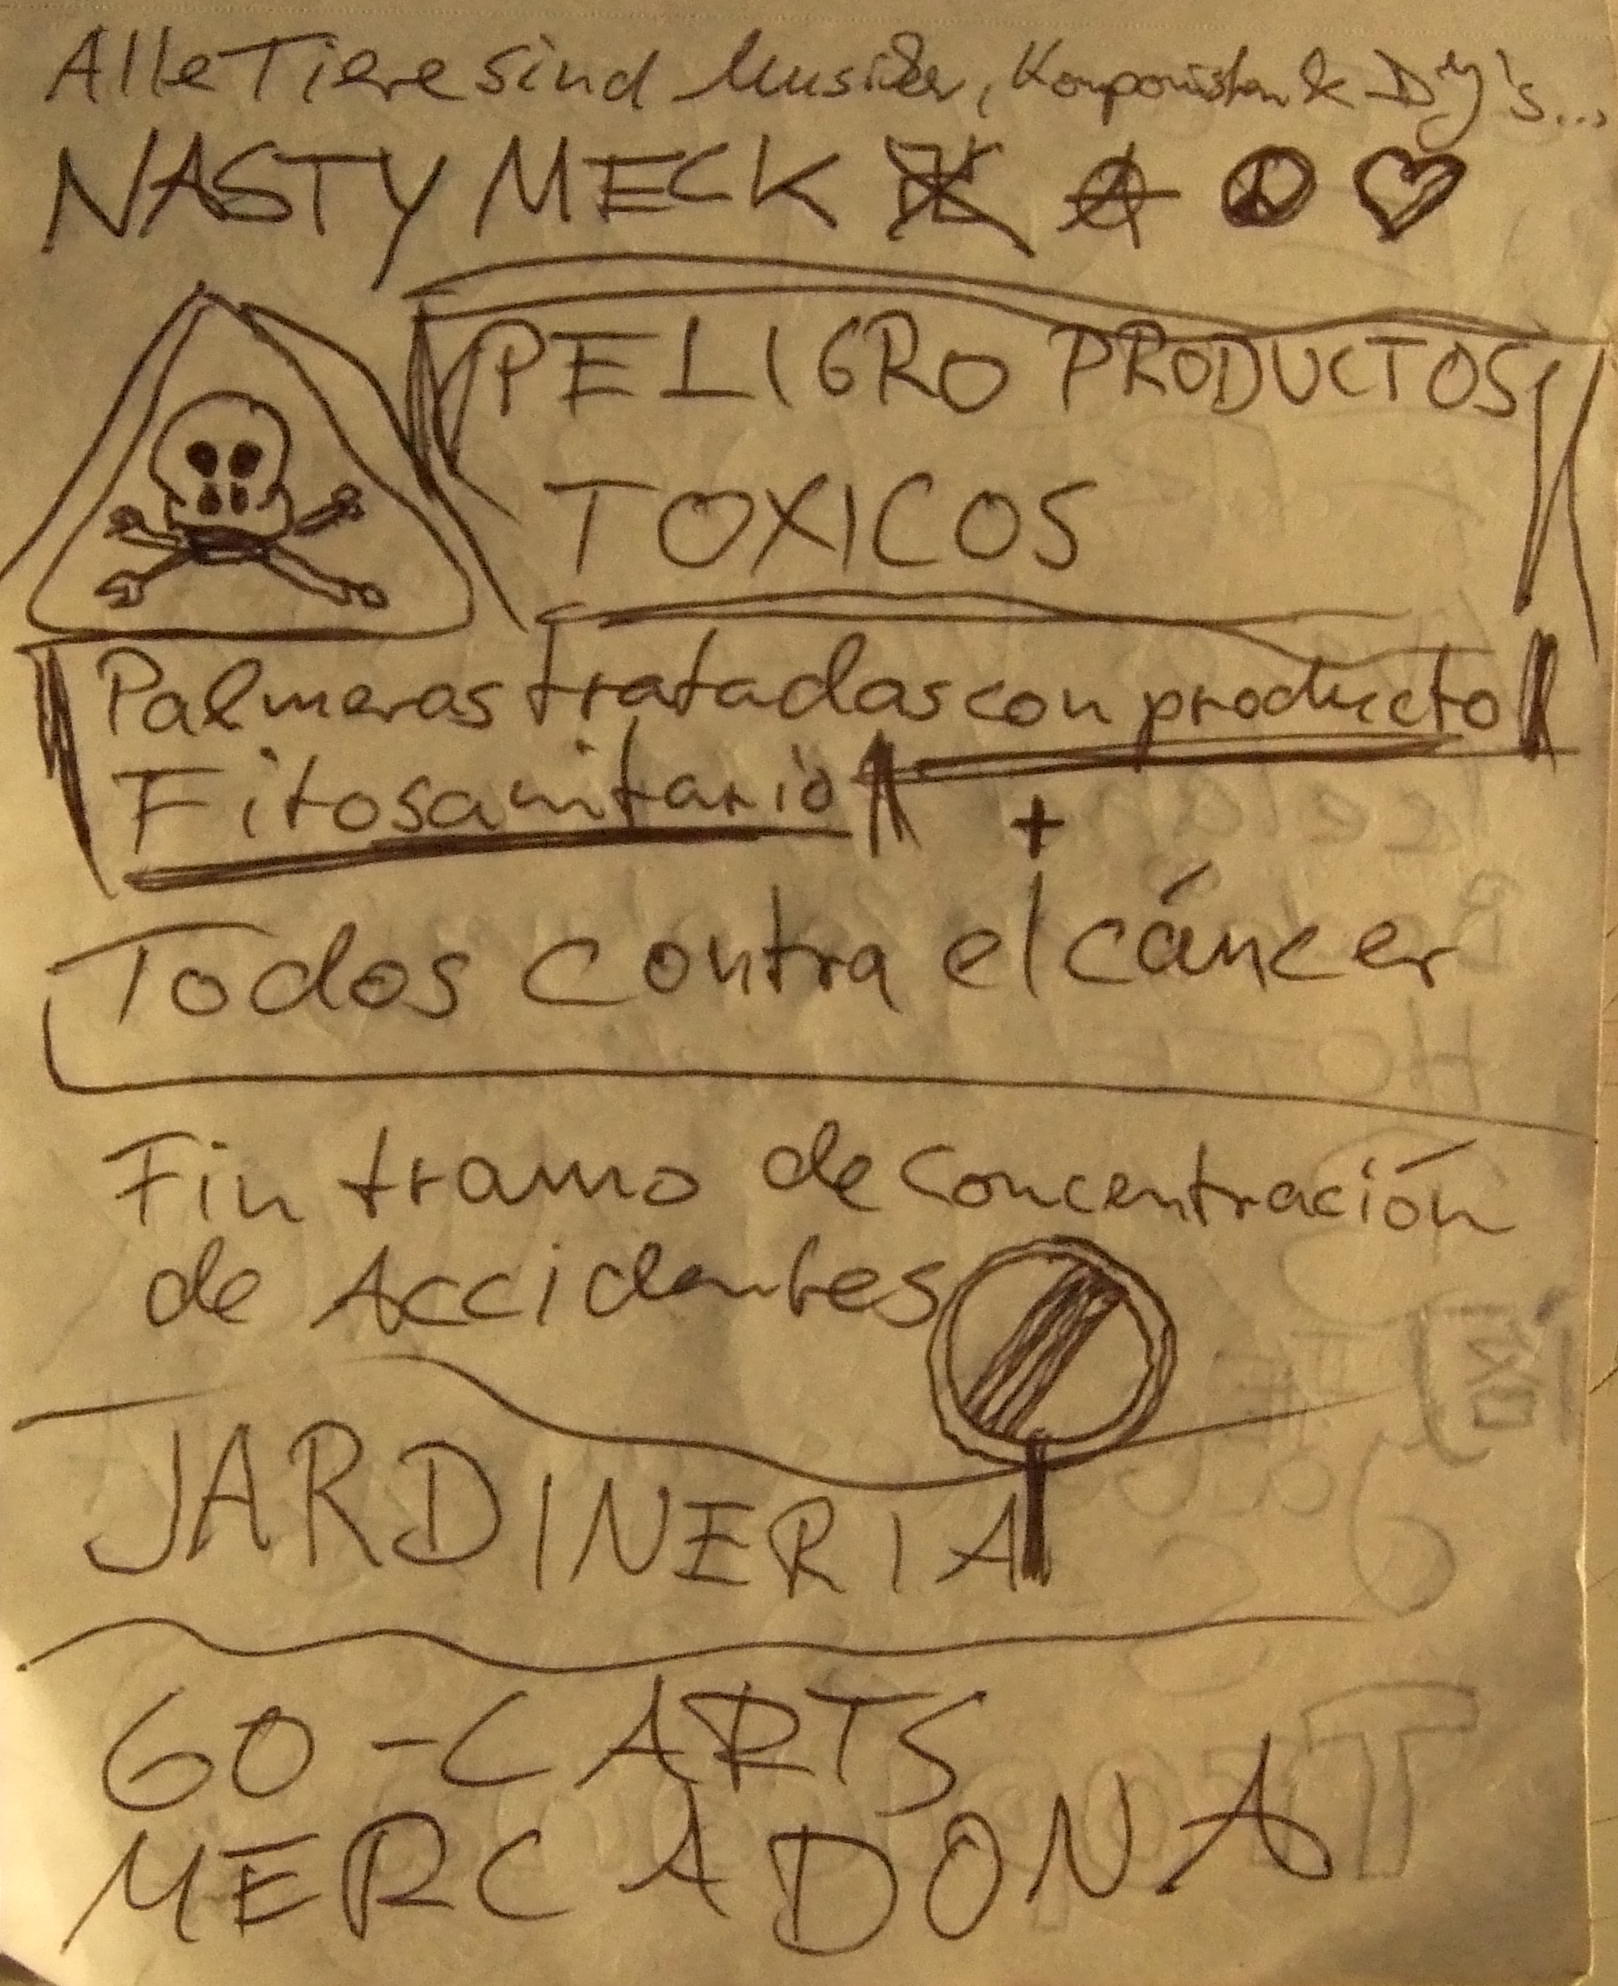 Alle Tiere sind Musiker, Komponisten & DJ's...
NASTY MECK
PELIGRO PRODUCTOS
TOXICOS
Palmeras tratadas con producto
Fitosanitario
+
Todos contra el cáncer
Fin tramo de Concentración
de Accidentes
JARDINERIA
GO-CARTS
MERCADONA